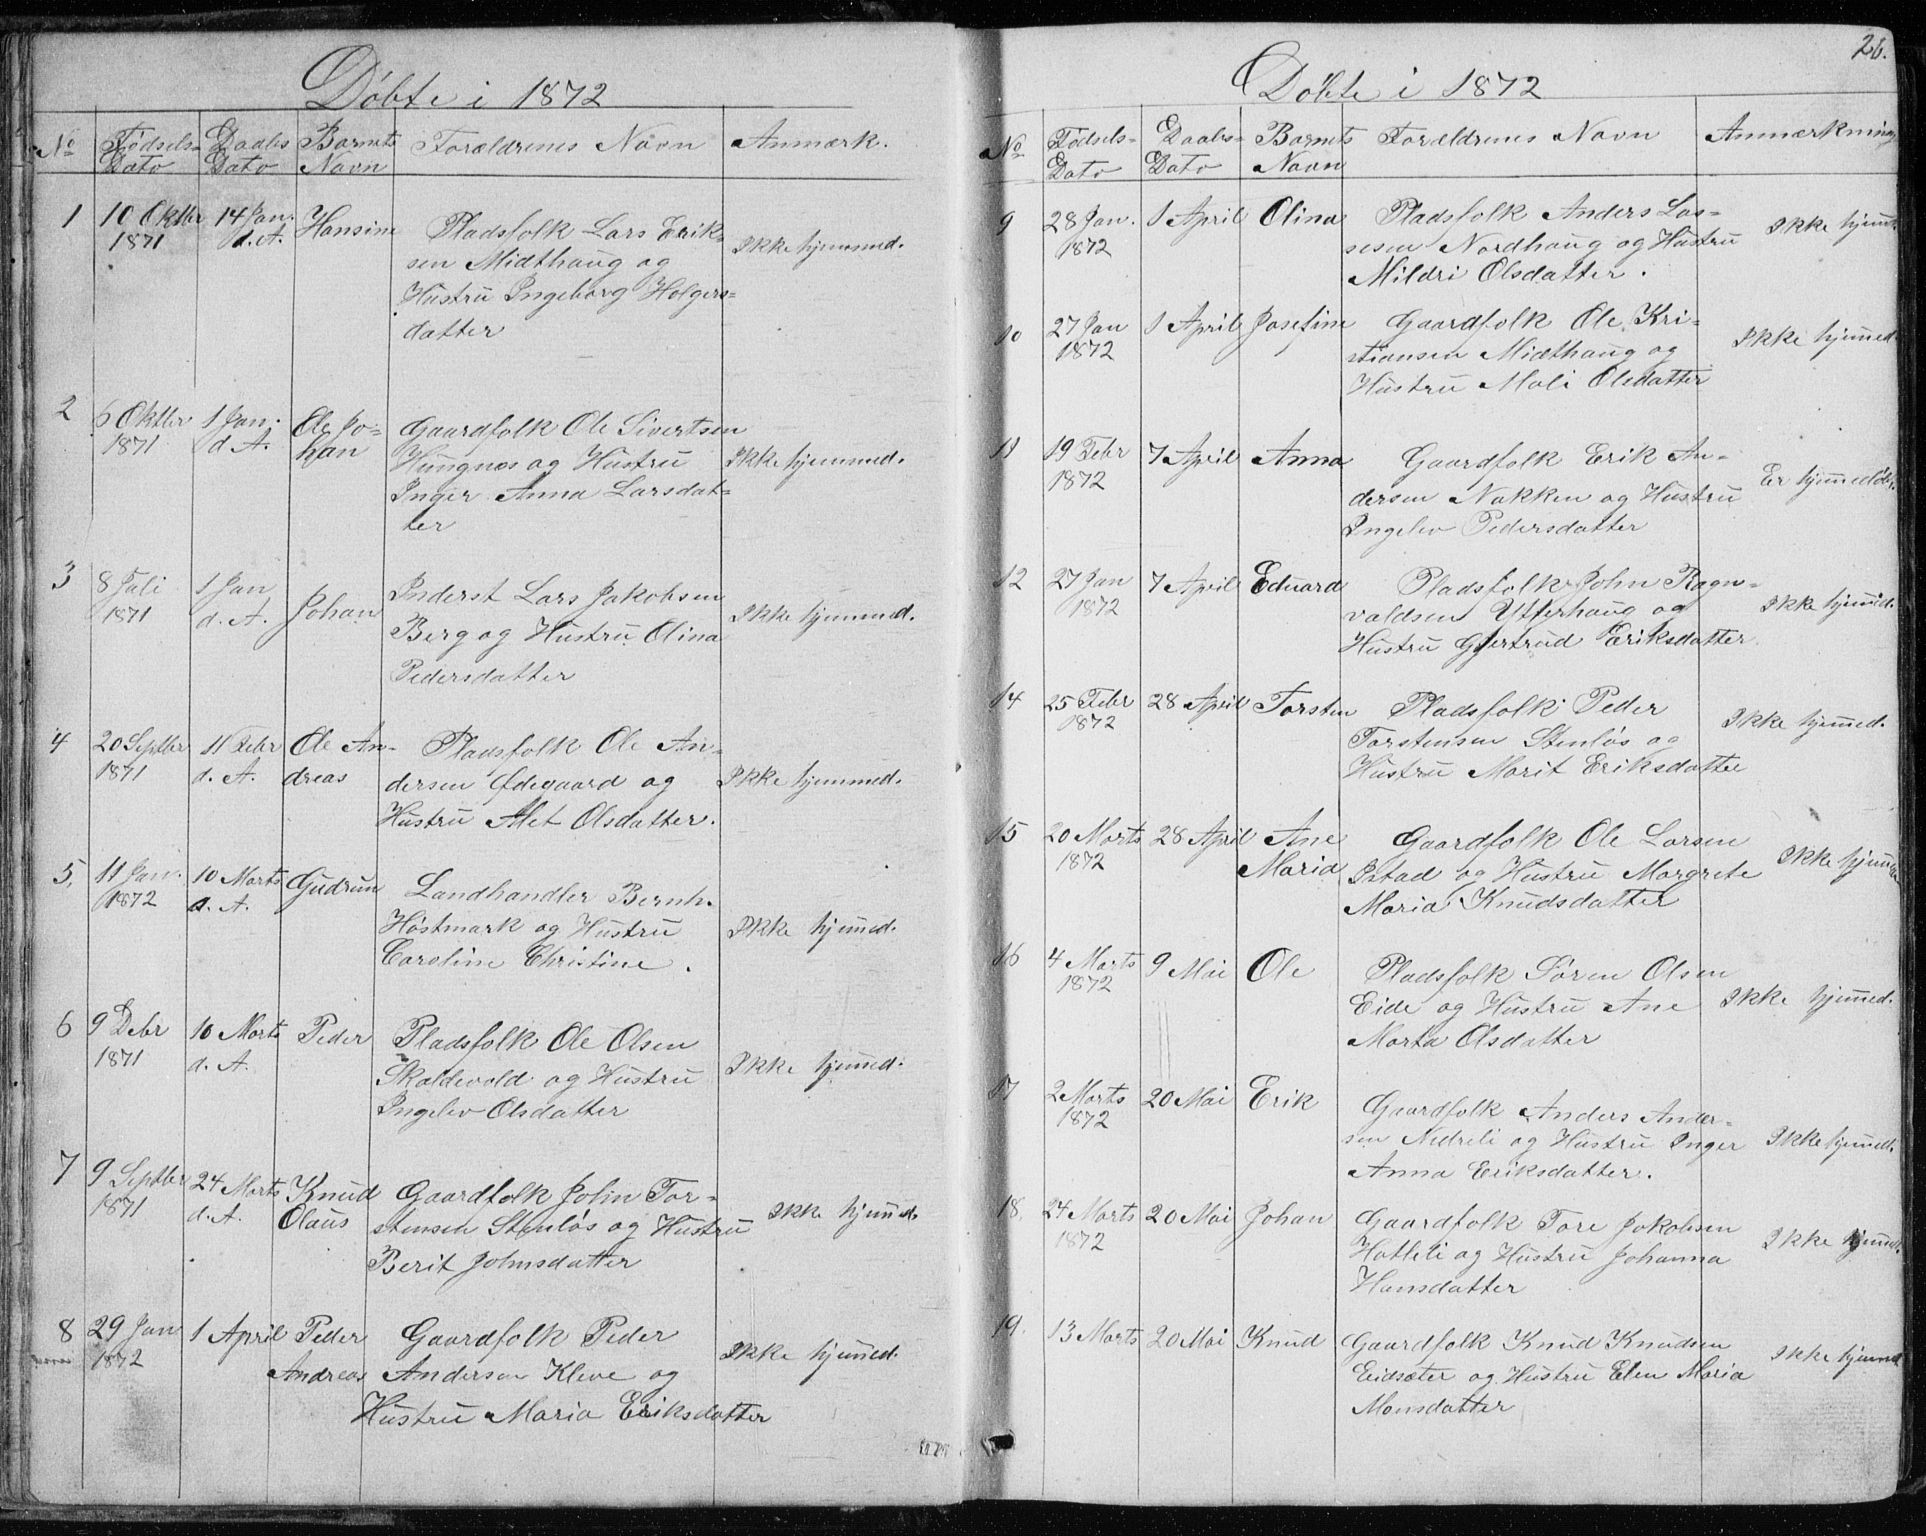 Døbte i 1872
No Fødsels- Dato Daabs Dato Barnets Navn Forældrenes Navn Anmærk.
1 10 Oktbr 1871 14 Jan. d. A. Hansine Pladsfolk Lars Erik-
sen Midthaug og
Hustru Ingeborg Holgers-
datter
Ikke hjemmed.
2 6 Oktbr 1871 1 Jan. d. A. Ole Jo-
han
Gaardfolk Ole Sivertsen
Hungnes og Hustru
Inger Anna Larsdat-
ter
Ikke hjemmed.
3 8 Juli 1871 1 Jan d. A. Johan
Inderst Lars Jakobsen
Berg og Hustru Olina
Pedersdatter
Ikke hjemmed.
4 20 Septbr 1871 11 Febr d. A. Ole An-
dreas
Pladsfolk Ole An-
dersen Ødegaard og
Hustru Alet Olsdatter.
Ikke hjemmed.
5, 11 Jan. 1872 10 Marts d. A. Gudrun
Landhandler Bernh.
Høstmark og Hustru
Caroline Christine.
Ikke hjem̄ed.
6 9 Debr 1871 10 Marts d. A. Peder
Pladsfolk Ole Olsen
Skaldevold og Hustru
Ingelev Olsdatter
Ikke hjem̄ed.
7 9 Septbr 1871 24 Marts d. A. Knud
Olaus
Gaardfolk John Tor-
stensen Stenløs og Hustru
Berit Johnsdatter
Ikke hjem̄ed.
8 29 Jan 1872 1 April Peder
Andreas
Gaardfolk Peder
Andersen Kleve og
Hustru Maria Eriksdatter
Ikke hjem̄ed.
26.
Døbte i 1872
No Fødsels- Dato Daabs- Dato Barnets Navn Forældrenes Navn Anmærkning
9 28 Jan. 1872 1 April Olina
Pladsfolk Anders Las-
sesen Nordhaug og Hustru
Mildri Olsdatter.
Ikke hjem̄
10 27 Jan 1872 1 April Josefine
Gaardfolk Ole Kri-
stiansen Midthaug og
Hustru Mali Olsdatter
Ikke hjem̄ed.
11 19 Febr 1872 7 April Anna
Gaardfolk Erik An-
dersen Nakken og Hustru
Ingelev Pedersdatter
Er hjem̄edøbt.
12 27 Jan 1872 7 April Eduard
Pladsfolk John Ragn-
valdsen Ytterhaug og
Hustru Gjertrud Eriksdatter
Ikke hjem̄ed.
14 25 Febr 1872 28 April Torsten
Pladsfolk Peder
Torstensen Stenløs og
Hustru Marit Eriksdatter
Ikke hjem̄ed.
15 20 Marts 1872 28 April Ane
Maria
Gaardfolk Ole Larsen
Istad og Hustru Margrete
Maria Knudsdatter
Ikke hjem̄ed
16 4 Marts 1872 9 Mai Ole
Pladsfolk Søren Olsen
Eide og Hustru Ane
Marta Olsdatter
Ikke hjem̄ed.
17 2 Marts 1872 20 Mai Erik
Gaardfolk Anders Ander-
sen Nedreli og Hustru Inger
Anna Eriksdatter.
Ikke hjem̄ed.
18. 24 Marts 1872 20 Mai Johan
Gaardfolk Tore Jakobsen
Hatleli og Hustru Johanna
Hansdatter
Ikke hjem̄ed.
19. 13 Marts 20 Mai Knud
Gaardfolk Knud Knudsen
Eidsæter og Hustru Elen Maria
Monsdatter
Ikke hjem̄ed